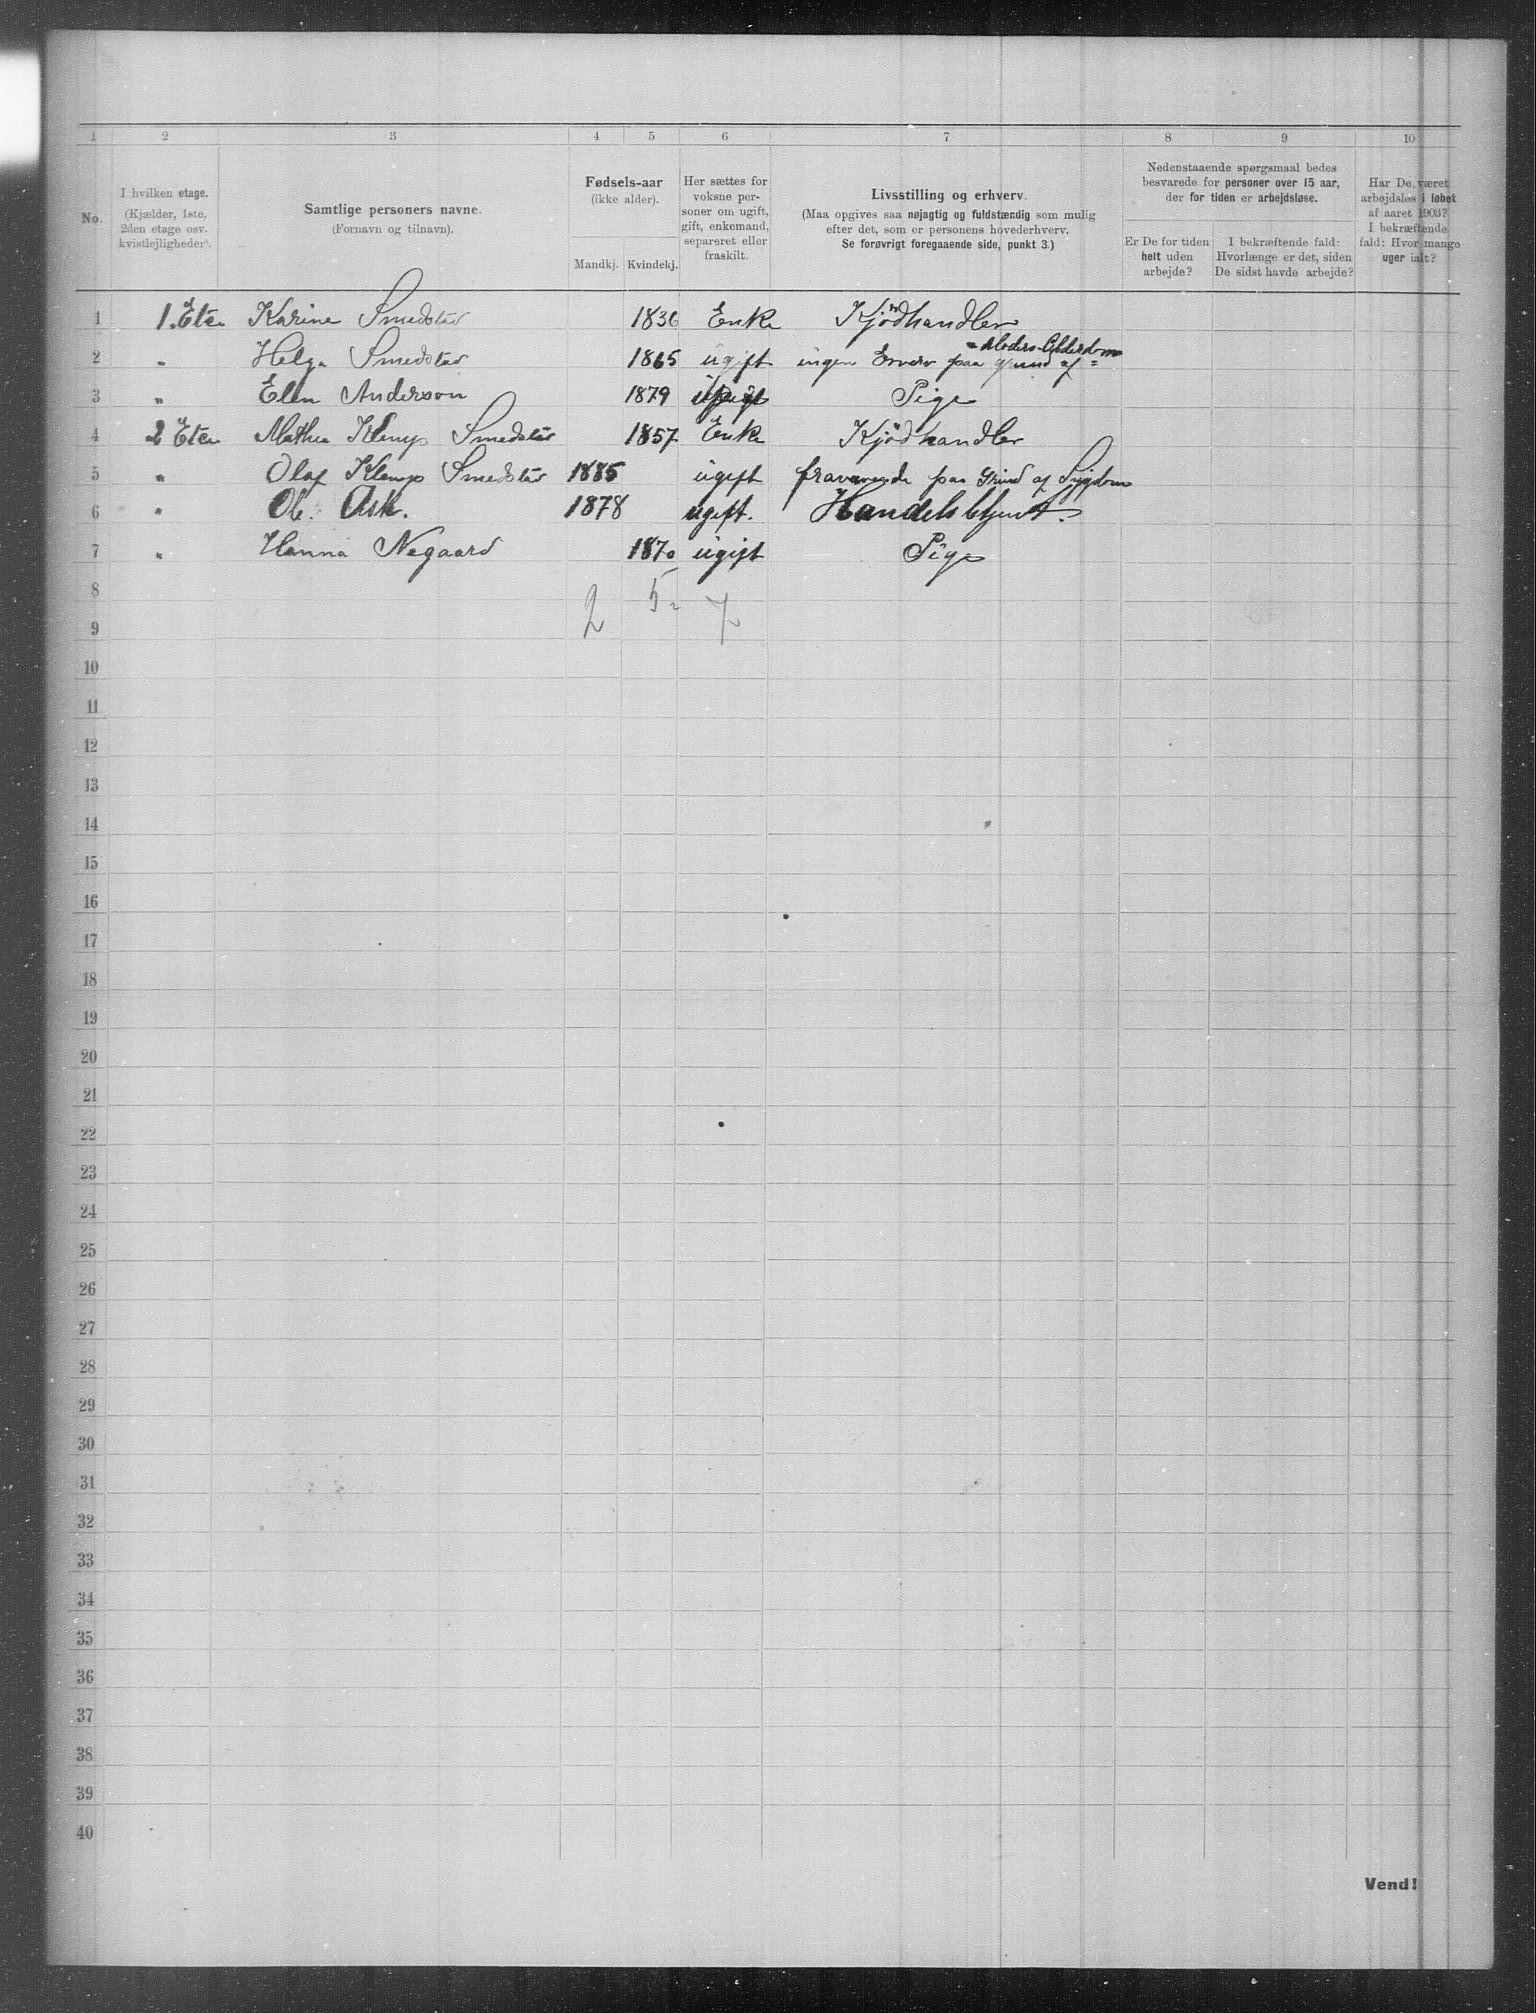 1 2 3 4 5 6 7 8 9 10
No.
I hvilken etage.
(Kjælder, 1ste,
2den etage osv.
kvistlejligheder).
Samtlige personers navne.
(Fornavn og tilnavn).
Fødsels-aar
(ikke alder).
Mandkj. Kvindekj.
Her sættes for
voksne per-
soner om ugift,
gift, enkemand,
separeret eller
fraskilt.
Livsstilling og erhverv.
(Maa opgives saa nøjagtig og fuldstændig som mulig
efter det, som er personens hovederhverv.
Se forøvrigt foregaaende side, punkt 3.)
Nedenstaaende spørgsmaal bedes
besvarede for personer over 15 aar,
der for tiden er arbejdsløse.
Er De for tiden
helt uden
arbejde?
I bekræftende fald:
Hvorlænge er det, siden
De sidst havde arbejde?
Har De været
arbejdsløs i løbet
af aaret 1903?
I bekræftende
fald: Hvor mange
uger ialt?
1 1. Etc Karine Smedstad 1836 Enke Kjödhandler
2 " Helga Smedstad 1865 ugift ingen Erverv paa grund af = Moders Alderdom
3 " Elen Anderson 1879 ugift Pige
4 2 Etc Mathea Klemp Smedstad 1857 Enke Kjödhandler
5 " Olaf Klemp Smedstad 1885 ugift fraværende paa Grund af Sygdom
6 " Ole Ask. 1878 ugift. Handelsbetjent.
7 " Hanna Nøgaard 1870 ugift Pige
8
2 5 = 7
9
10
11
12
13
14
15
16
17
18
19
20
21
22
23
24
25
26
27
28
29
30
31
32
33
34
35
36
37
38
39
40
Vend!